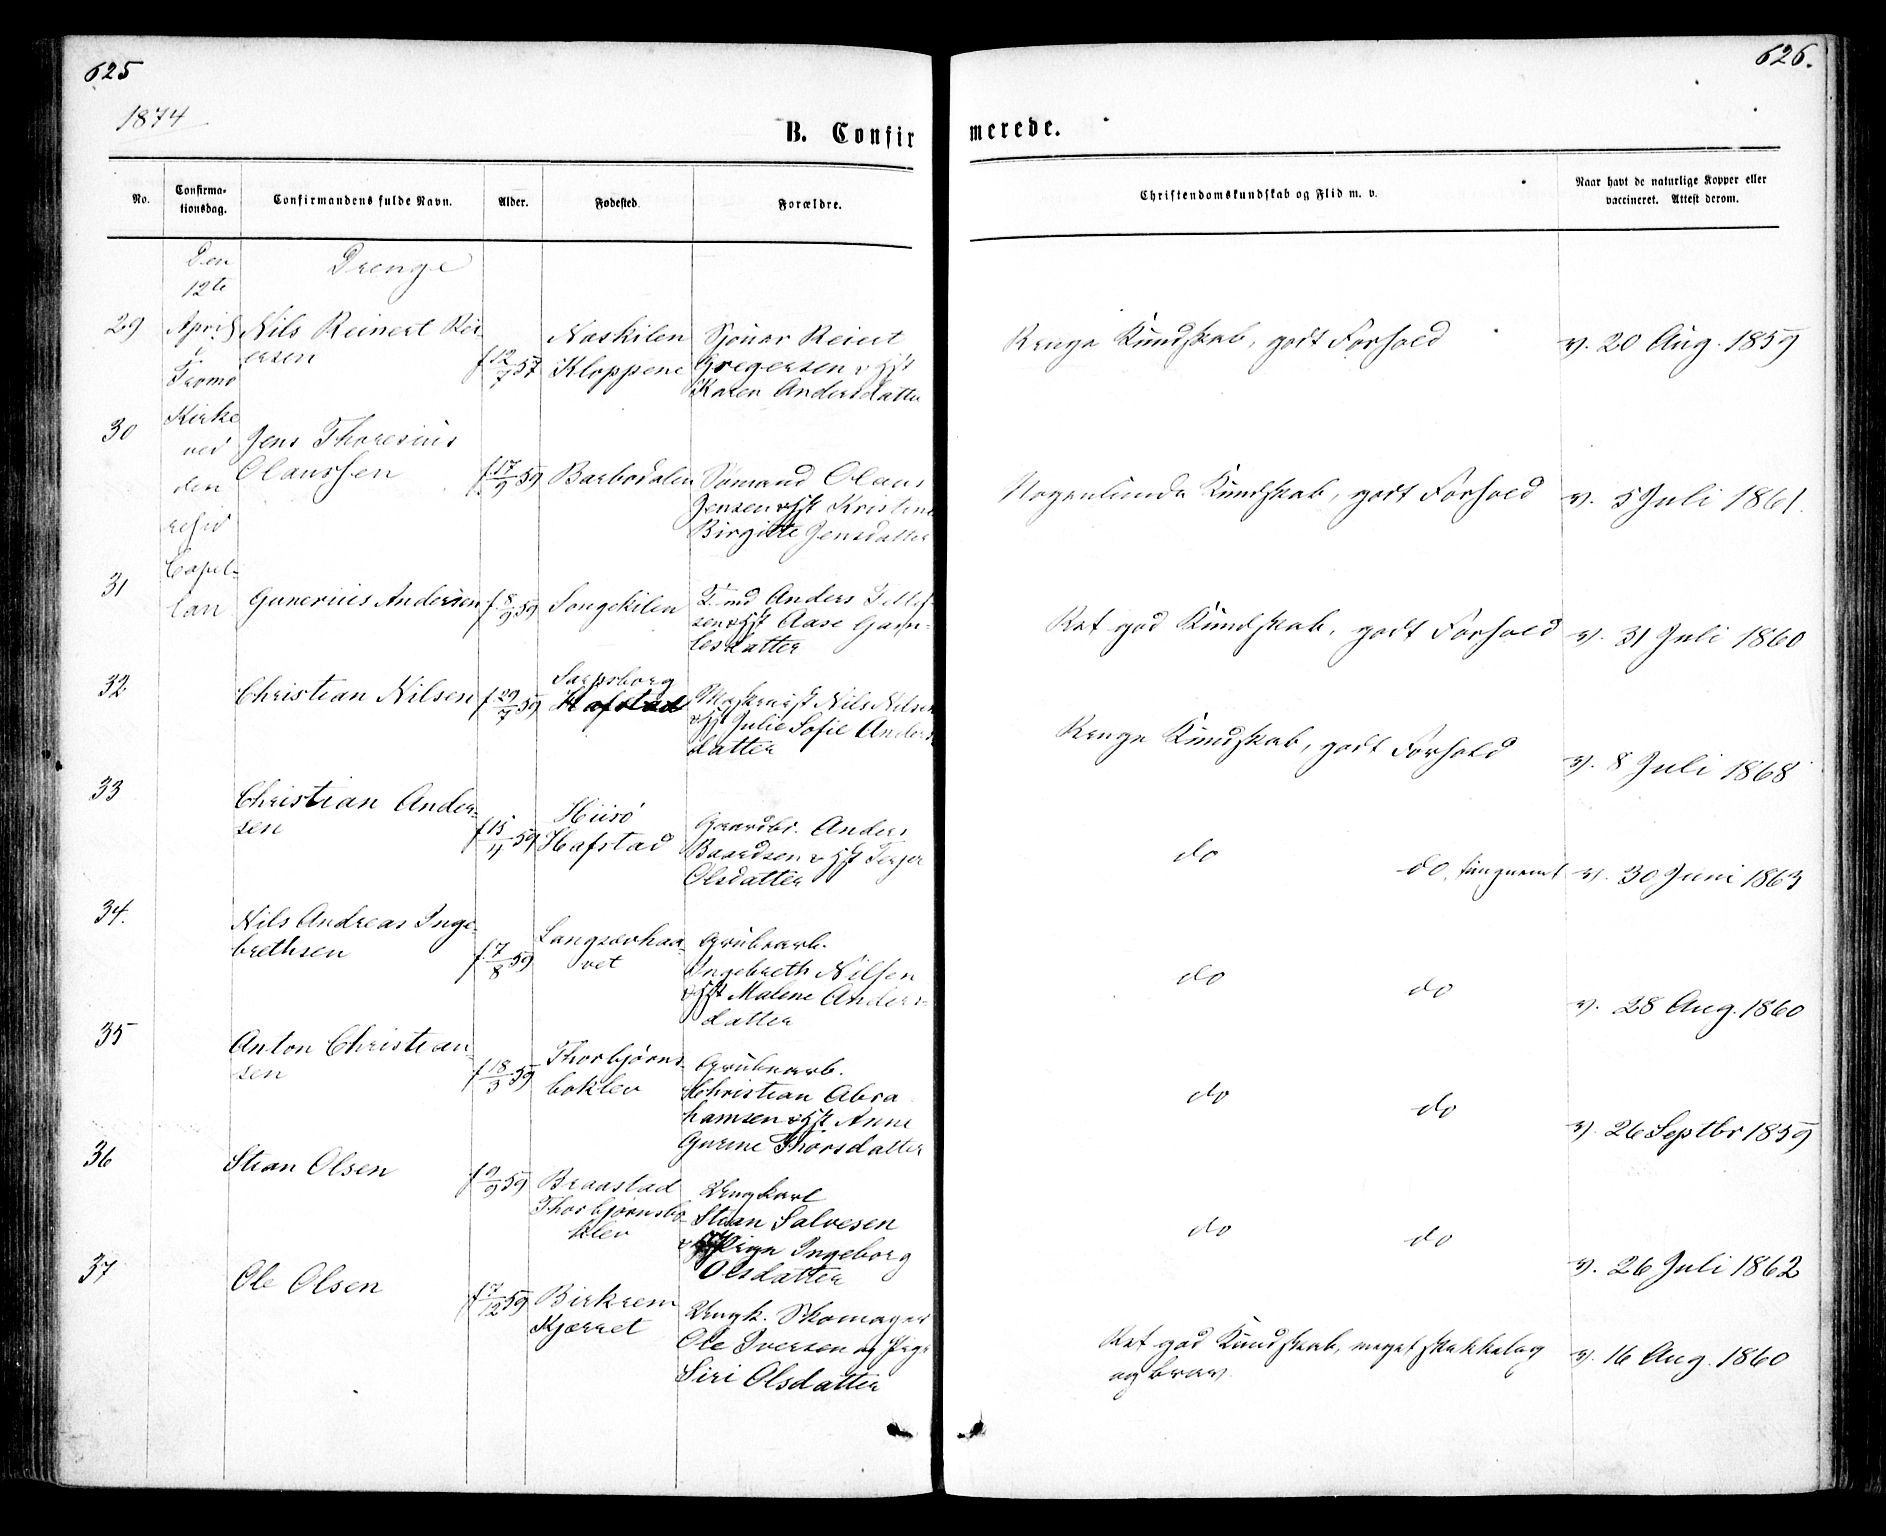 625
626.
1874
B. Confirmerede.
No.
Confirmationsdag.
Confirmandens fulde Navn.
Alder.
Fødested.
Forældre.
Christendomskundskab og Flid m. v.
Naar havt de naturlige Kopper eller
vaccineret. Attest derom.
Den
12te
April
i
Tromø
Kirke
ved
den
resid
Capel-
lan
Drenge
29
Nils Reinert Rei-
ersen
f 12/7 57
Naskilen
Kloppene
Reiert
Gregersen & Hst
Karen Andersdatter
Kundskab, godt Forhold
v. 20 Aug. 1859
30
Jens Thoresius
Olaussen
f. 17/9 59
Barbodalen
Sømand Olaus
Jensen & Hst Kristine
Birgitte Jensdatter
Nogenlunde Kundskab, godt Forhold
v. 5 Juli 1861.
31
Gunerius Andersen
f 8/9 59
Songekilen
Anders
sen & Hst Aase Gun-
lesdatter
Ret god Kundskab, godt Forhold
v. 31 Juli 1860
32
Christian Nilsen
f 29/7 59
Sarpsborg
Hafstad
Nils Nilsen
& Hst Julie Sofie Anders-
datter
Kundskab, godt Forhold
v. 8 Juli 1868
33
Christian Ander-
sen
f 15/11 59
Hiisø
Hafstad
Gaardbr. Anders
Baardsen & Hst
Olsdatter
do do, tungnemt
v. 30 Juni 1863
34.
Nils Andreas Inge-
brethsen
f 7/8 59
Langsævhaa-
vet
Grubearb.
Ingebreth Nilsen
& Hst Malene Anders-
datter
do do
v. 28 Aug. 1860
35
Anton Christian-
sen
f 18/3 59
Thorbjørns-
boklev
Grubearb.
Christian Abra-
hamsen & Hst Anne
Gurine Thorsdatter
do do
v. 26 Septbr 1859
36
Stian Olsen
f 9/9 59
Braastad
Thorbjørnsbo-
klev
Ungkarl
Stian Salvesen
& Pige Ingeborg
Olsdatter
do do
v. 26 Juli 1862
37
Ole Olsen
f 17/12 59
Birkrem
Kjærret
Ungk. Skomager
Ole Iversen og Pige
Siri Olsdatter
Ret god Kundskab, meget skikkelig
og brav
v. 16 Aug. 1860